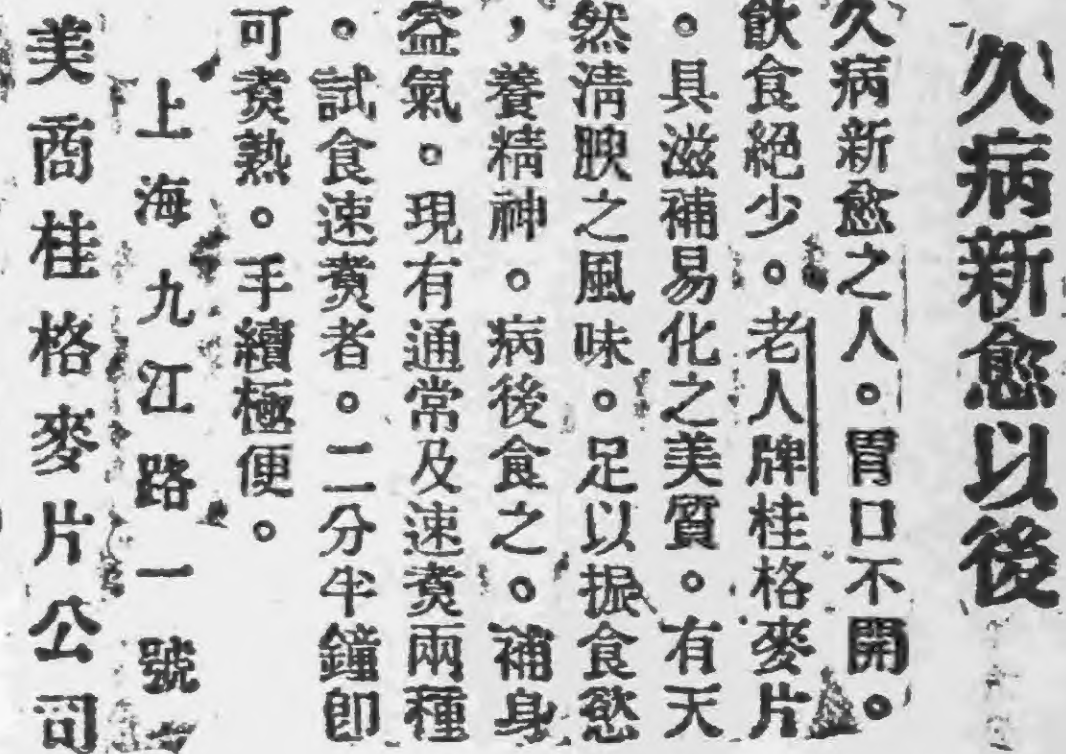 久病新愈以後
久病新愈之人。胃口不開。
飲食絕少。老人牌桂格麥片
。具滋補易化之美質。有天
然清腴之風味。足以振食慾
，養精神。病後食之。補身
益氣。現有通常及速煑兩種
。試食速煑者。二分半鐘卽
可煑熟。手續極便。
上海九江路一號
美商桂格麥片公司